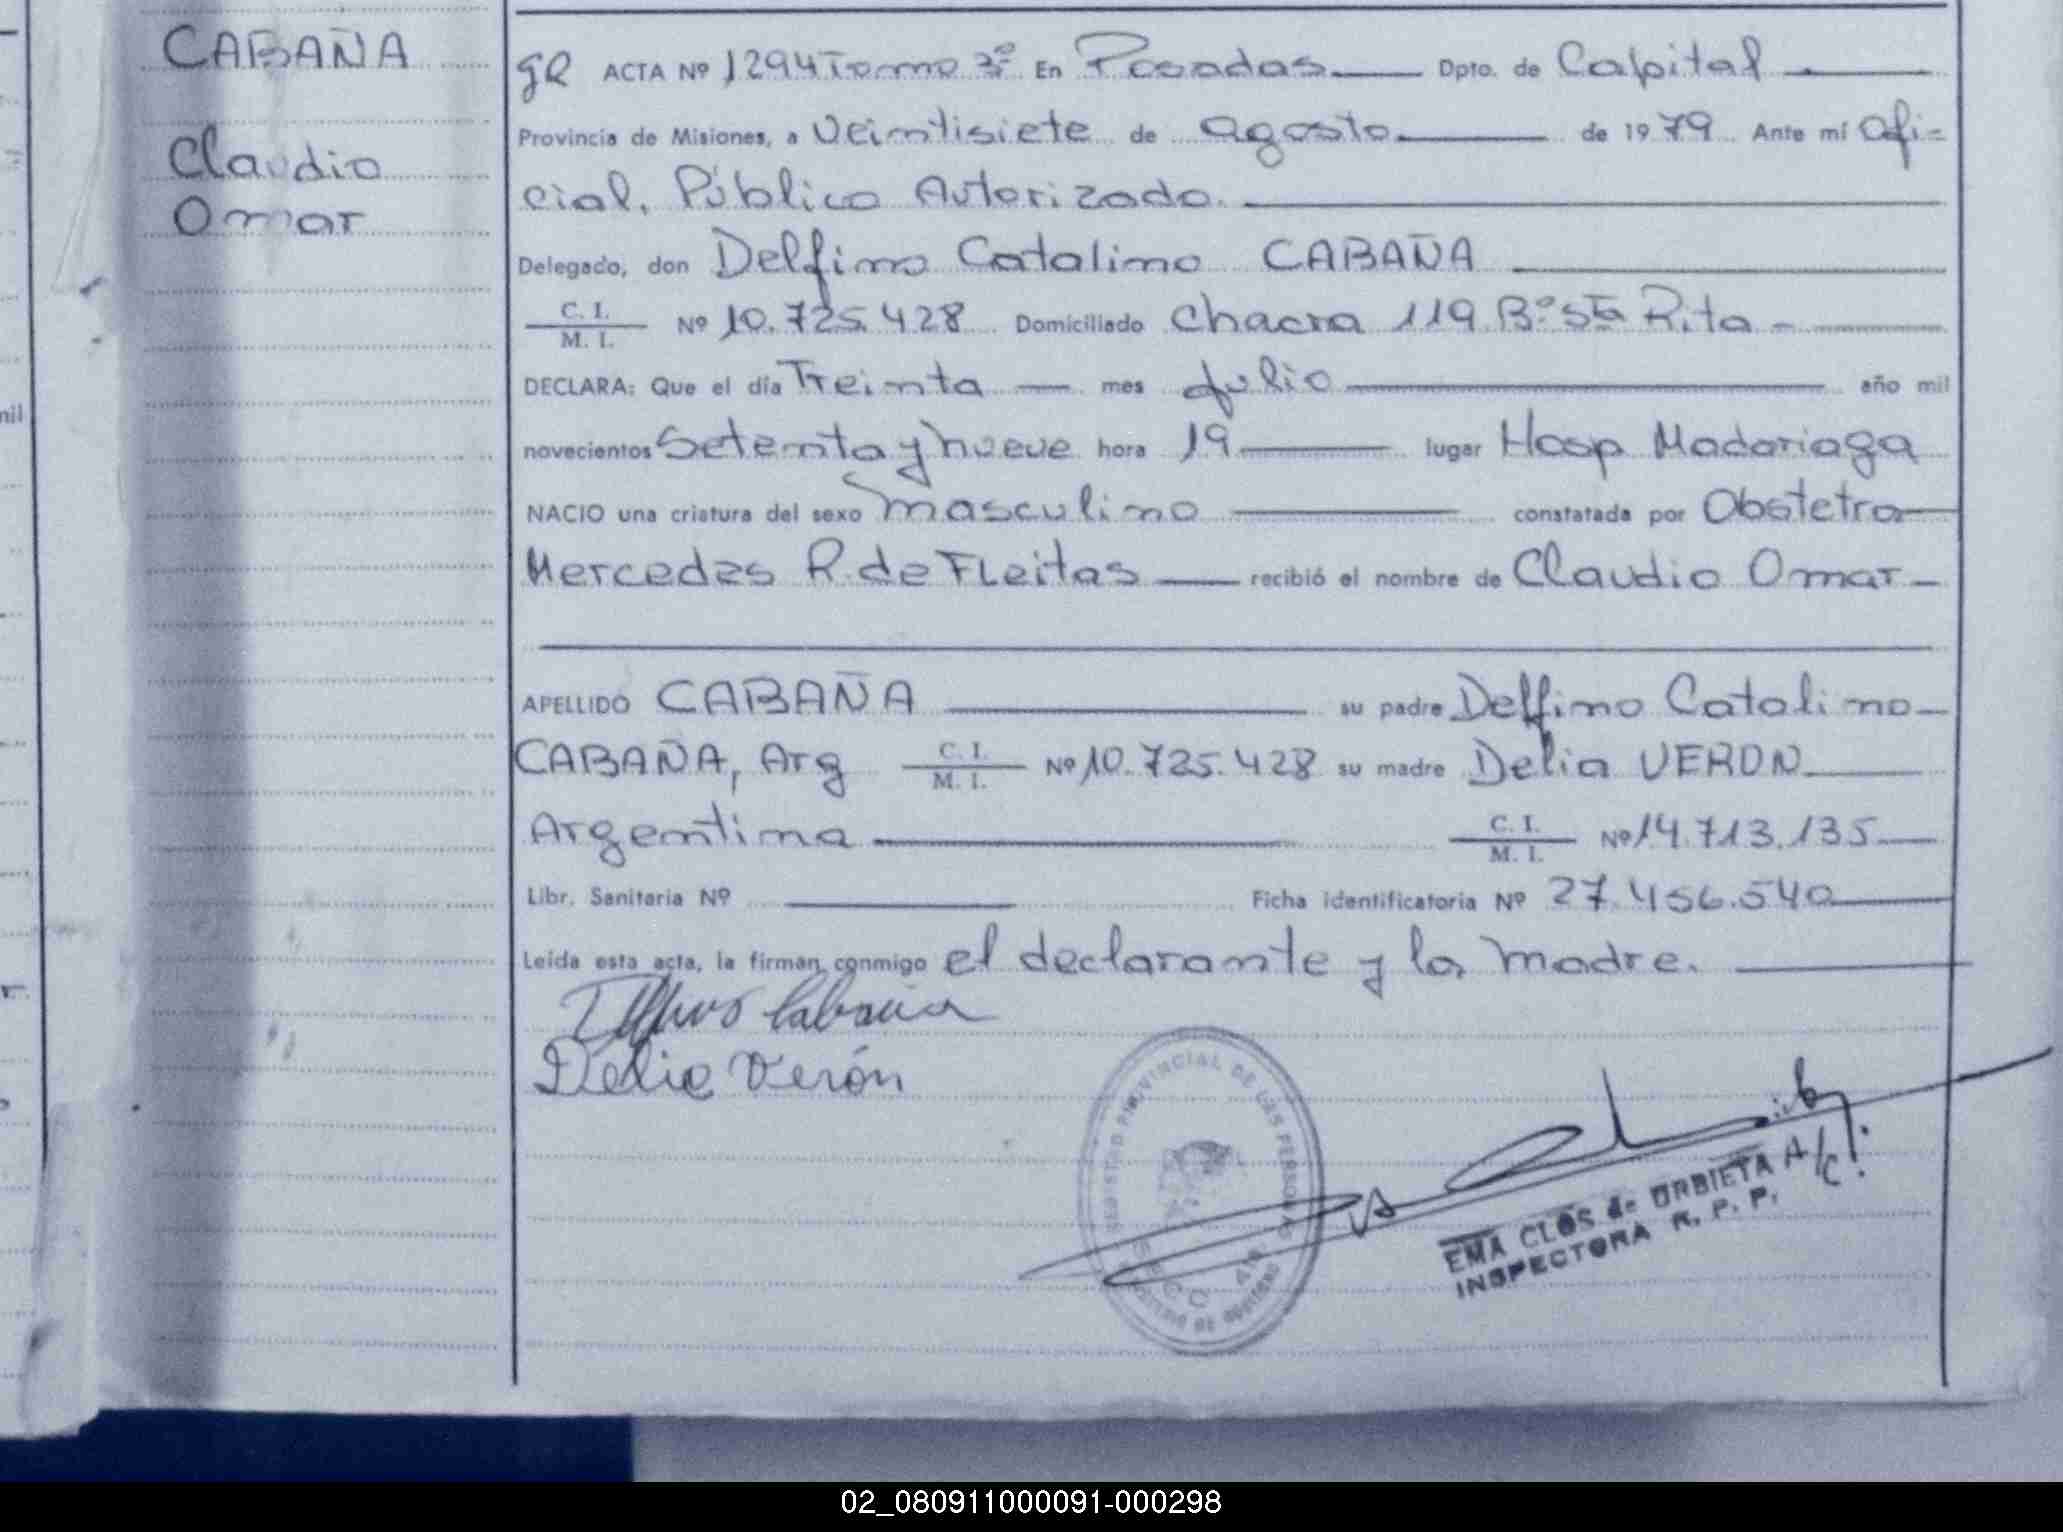 CABAÑA
Claudio
Omar
GR ACTA Nº 1294 Tomo 3º En Posadas Dpto. de Capital
Provincia de Misiones, a Veintisiete de agosto de 1979 Ante mí Ofi=
cial, Público Autorizado.
Delegado, don Delfino Catalino CABAÑA
C. I.
M. I. Nº 10.725.428 Domiciliado Chacra 119 Bº Sta Rita -
DECLARA: Que el día Treinta mes Julio año mil
novecientos Setenta y nueve hora 19 lugar Hosp Madariaga
NACIO una criatura del sexo masculino constatada por Obstetra
Mercedes R. de Fleitas recibió el nombre de Claudio Omar -
APELLIDO CABAÑA su padre Delfino Catalino
CABAÑA, Arg C. I. M. I. Nº 10.725.428 su madre Delia VERON
Argentina C. I. M. I. Nº 14.713.135
Libr. Sanitaria Nº Ficha identificatoria Nº 27.456.540
Leída esta acta, la firman conmigo el declarante y la madre.
Delfino Cabaña
Delia Verón
PROVINCIAL DE LAS PERSONAS
SECC 4ta
EMA CLOS de URBIETA A/C:
INSPECTORA R. P. P.
nil
r.
02_080911000091-000298